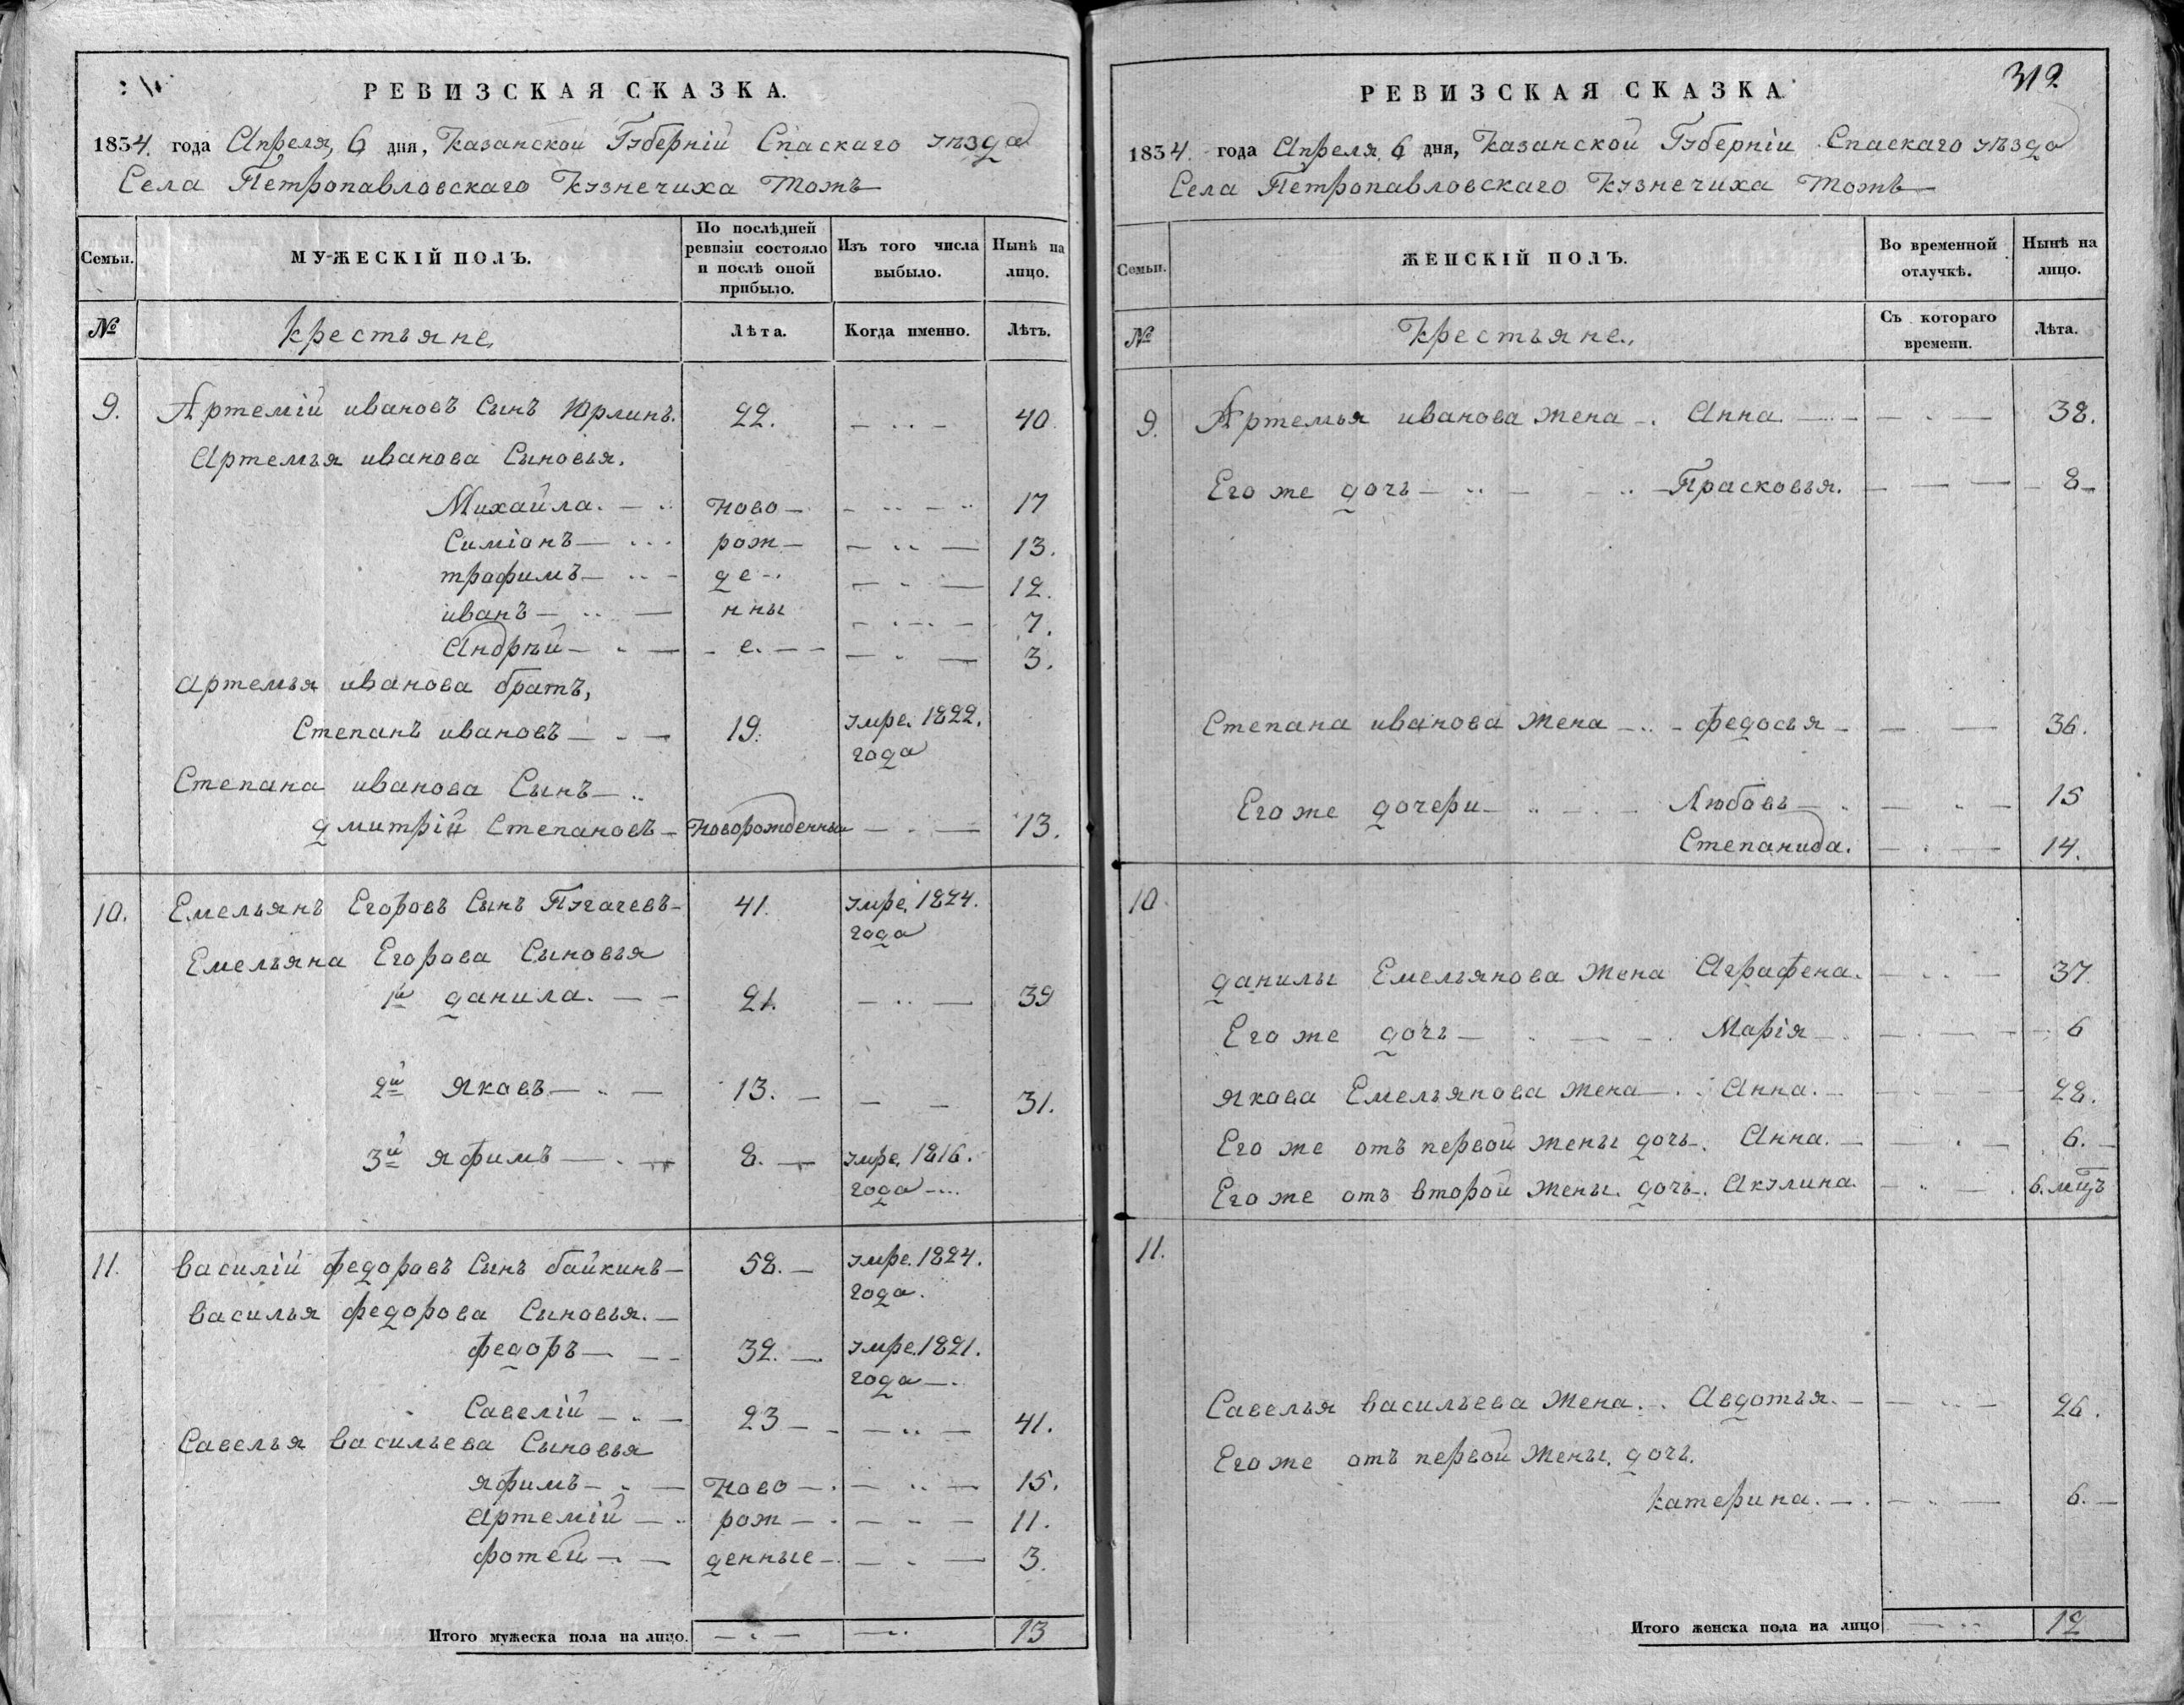 РЕВИЗСКАЯ СКАЗКА.
1834. года Апреля, 6 дня, Казанской Губерніи Спаскаго уѣзда
Села Петропавловскаго Кузнечиха тожъ
Семьи. МУЖЕСКІЙ ПОЛЪ. По послѣдней ревизіи состояло и послѣ оной прибыло. Изъ того числа выбыло. Нынѣ на лицо.
№ Крестьяне, Лѣта. Когда именно. Лѣтъ.
9. Артемій ивановъ Сынъ Юрлинъ. 22. 40.
Артемья иванова Сыновья.
Михайла. Ново 17
Симіонъ рож 13.
трафимъ де 12.
иванъ нны 7.
Андрѣй е. 3.
Артемья иванова братъ,
Степанъ ивановъ 19. умре. 1822.
года
Степана иванова Сынъ
дмитрій Степановъ Новорожденны 13.
10. Емельянъ Егоровъ Сынъ Пугачевъ 41. умре. 1824.
года
Емельяна Егорова Сыновья
1й данила. 21. 39
2й Яковъ 13. 31.
3й яфимъ 8. умре. 1816.
года
11. василій федоровъ Сынъ байкинъ 58. умре. 1824.
года.
василья федорова Сыновья.
федоръ 32. умре. 1821.
года
Савелій 23 41.
Савелья васильева Сыновья
яфимъ Ново 15.
Артемій рож 11.
фотей денные 3.
Итого мужеска пола на лицо. 13
312
РЕВИЗСКАЯ СКАЗКА.
1834. года Апреля, 6 дня, Казанской Губерніи Спаскаго уѣзда
Села Петропавловскаго Кузнечиха тожъ
Семьи. ЖЕНСКІЙ ПОЛЪ. Во временной отлучкѣ. Нынѣ на лицо.
№ Крестьяне., Съ котораго времени. Лѣта.
9. Артемья иванова жена Анна 38.
Его же дочь Прасковья. 8
Степана иванова жена федосья 36.
Его же дочери Любовь 15
Степанида. 14.
10.
данилы Емельянова жена Аграфена. 37.
Его же дочь Марія 6
Якова Емельянова жена Анна. 28.
Его же отъ первой жены дочь. Анна. 6.
Его же отъ второй жены. дочь. Акулина. 6. мцъ
11.
Савелья васильева жена. Авдотья. 26.
Его же отъ первой жены. дочь.
катерина. 6.
Итого женска пола на лицо 12